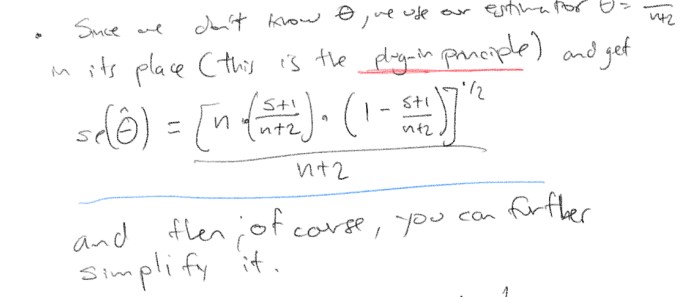 • Since we don't know θ, we use our estimator θ̂ = /n+2
in its place (this is the plug-in principle) and get
se(θ̂) = [n · (s+1/n+2) · (1 - s+1/n+2)]^1/2 / n+2
and then, of course, you can further
simplify it.